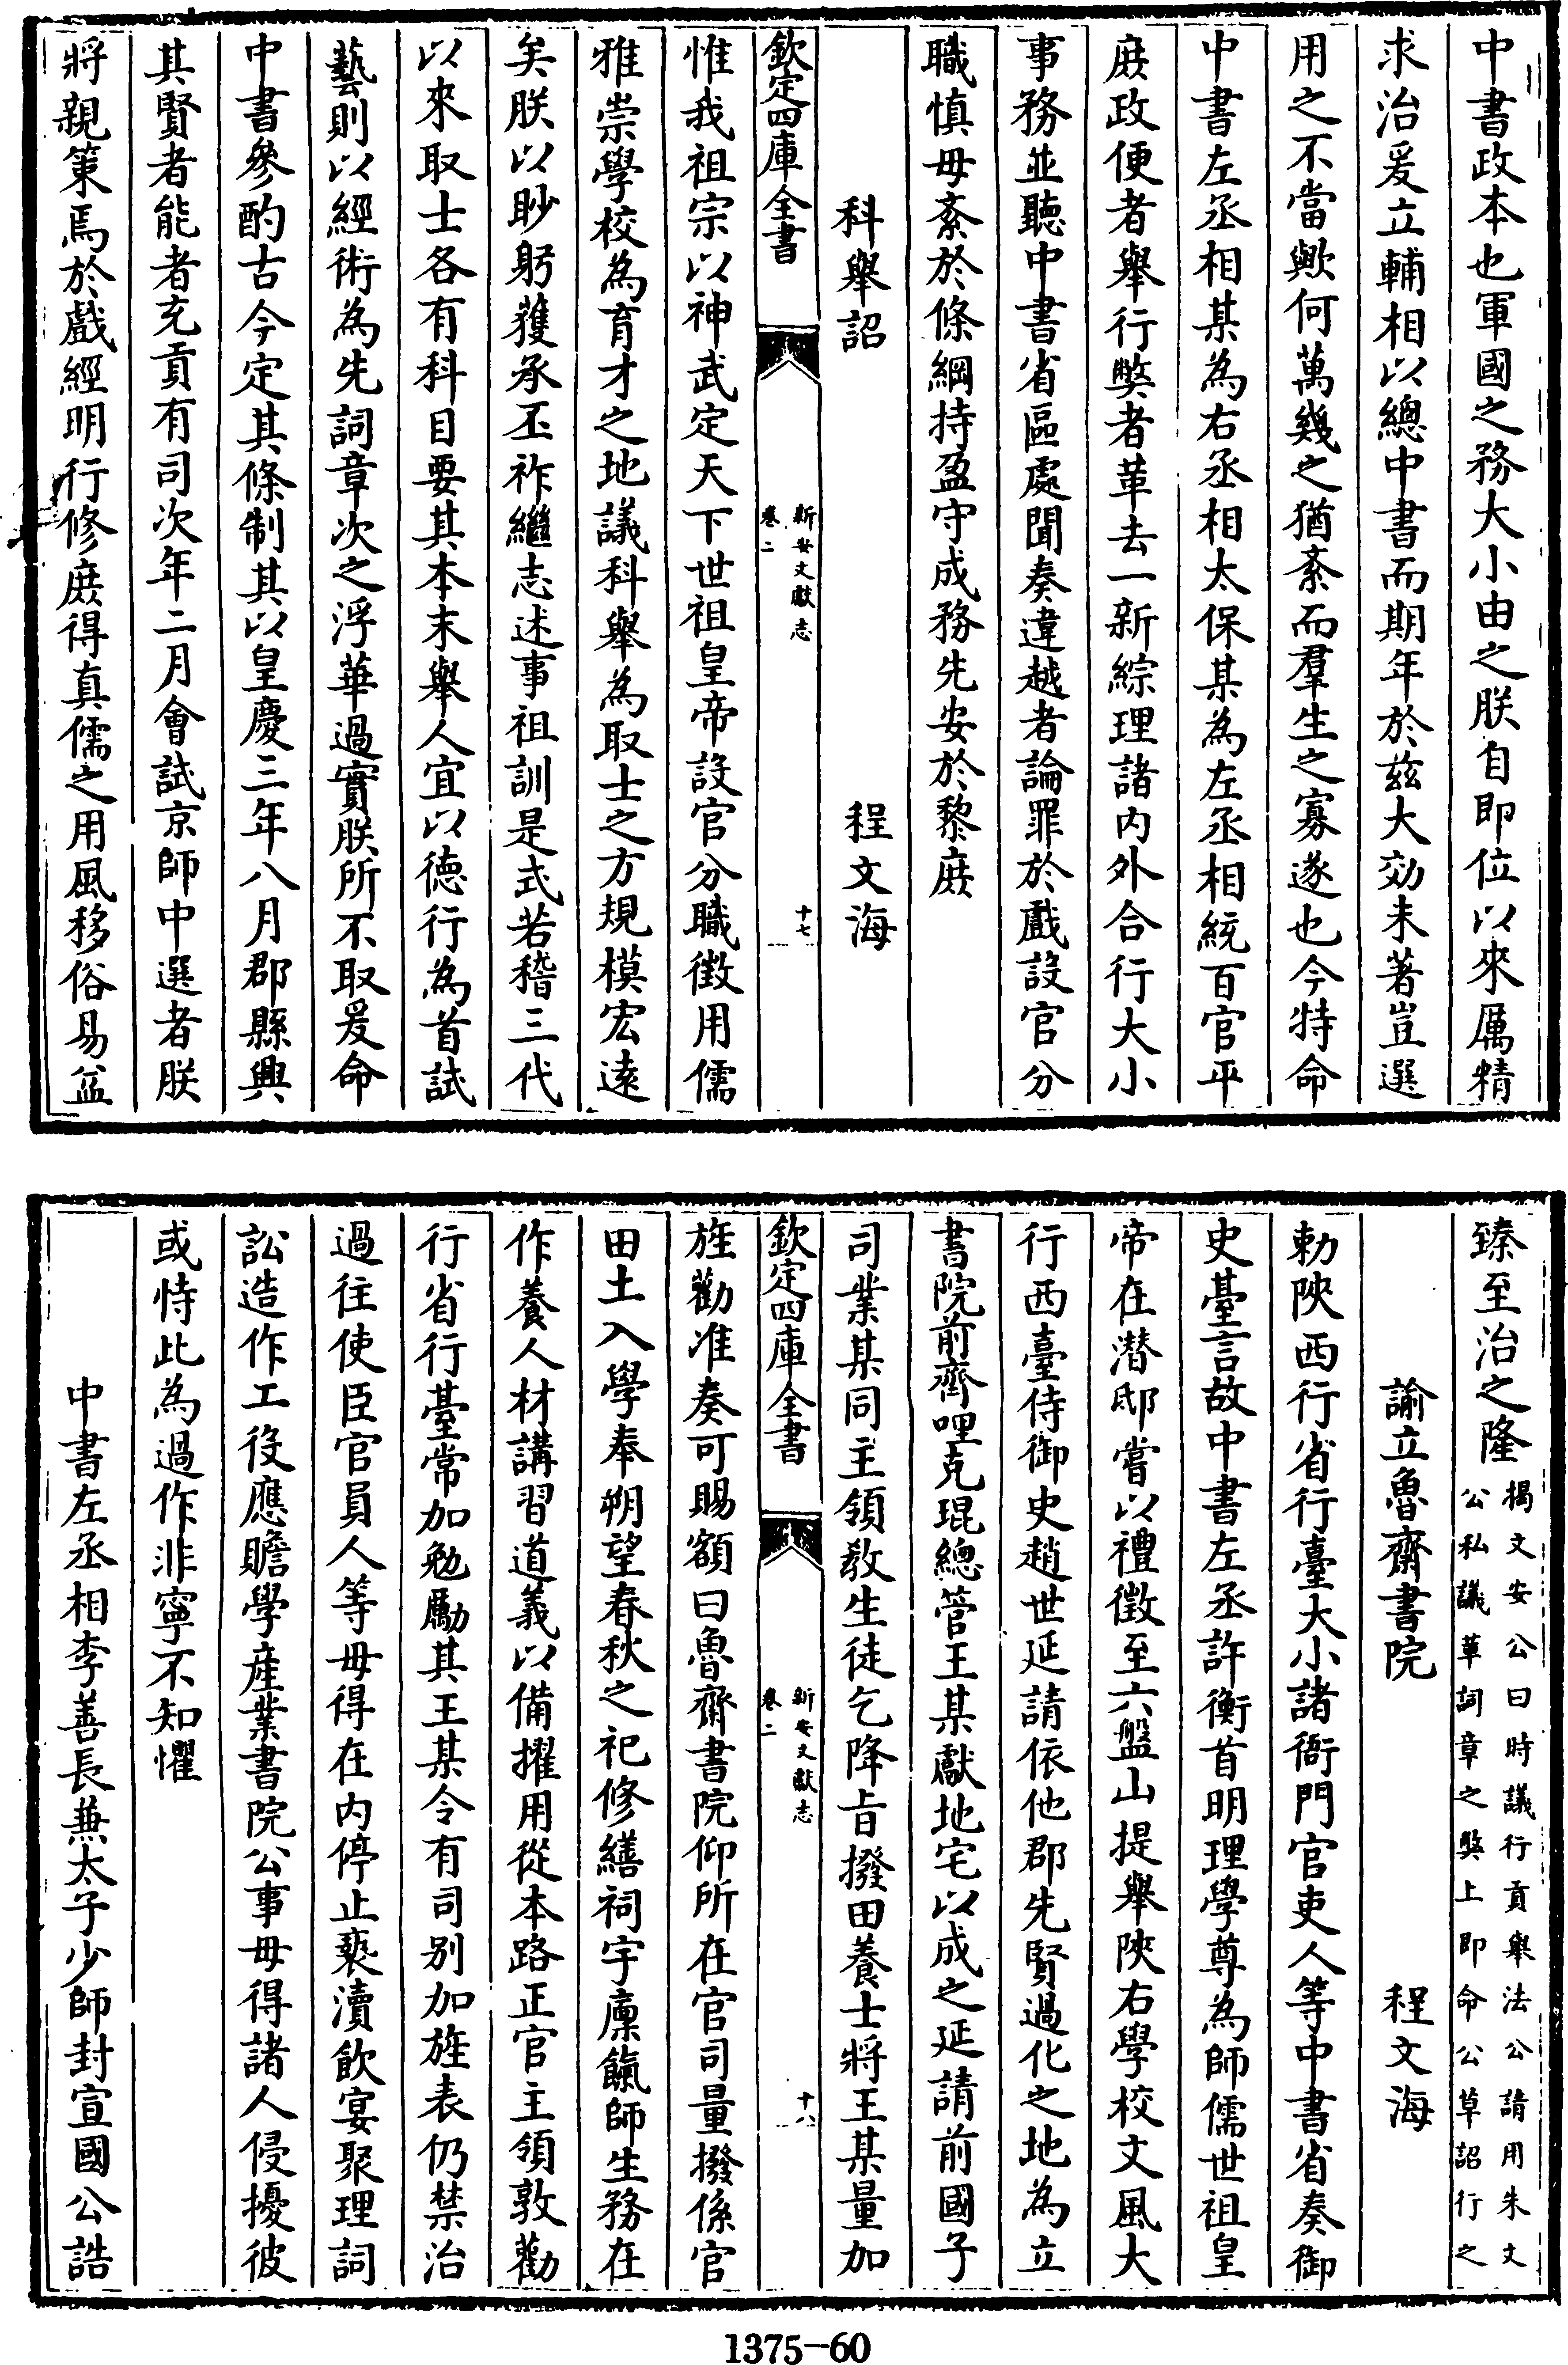 中書政本也軍國之務大小由之朕自即位以來厲精
求治爰立輔相以總中書而期年於兹大効未著豈選
用之不當歟何萬幾之猶紊而羣生之寡遂也今特命
中書左丞相某為右丞相太保某為左丞相統百官平
庶政便者舉行弊者革去一新綜理諸内外合行大小
事務並聽中書省區處聞奏違越者論罪於戲設官分
職慎毋紊於條綱持盈守成務先安於黎庶
科舉詔　程文海
欽定四庫全書　新安文獻志　卷二　十七
惟我祖宗以神武定天下世祖皇帝設官分職徵用儒
雅崇學校為育才之地議科舉為取士之方規模宏遠
矣朕以眇躬獲承丕祚繼志述事祖訓是式若稽三代
以來取士各有科目要其本末舉人宜以德行為首試
藝則以經術為先詞章次之浮華過實朕所不取爰命
中書參酌古今定其條制其以皇慶三年八月郡縣興
其賢者能者充貢有司次年二月會試京師中選者朕
將親策焉於戲經明行修庶得真儒之用風移俗易益
臻至治之隆揭文安公曰時議行貢舉法公請用朱文
公私議革詞章之弊上即命公草詔行之
諭立魯齋書院　程文海
勅陝西行省行臺大小諸衙門官吏人等中書省奏御
史臺言故中書左丞許衡首明理學尊為師儒世祖皇
帝在潛邸嘗以禮徵至六盤山提舉陝右學校文風大
行西臺侍御史趙世延請依他郡先賢過化之地為立
書院前齊哩克琨總管王某獻地宅以成之延請前國子
司業某同主領教生徒乞降旨撥田養士將王某量加
欽定四庫全書　新安文獻志　卷二　十八
旌勸准奏可賜額曰魯齋書院仰所在官司量撥係官
田土入學奉朔望春秋之祀修繕祠宇廩餼師生務在
作養人材講習道義以備擢用從本路正官主領敦勸
行省行臺常加勉勵其王某令有司别加旌表仍禁治
過往使臣官員人等毋得在内停止䙝瀆飲宴聚理詞
訟造作工役應贍學產業書院公事毋得諸人侵擾彼
或恃此為過作非寧不知懼
中書左丞相李善長兼太子少師封宣國公誥
1375-60